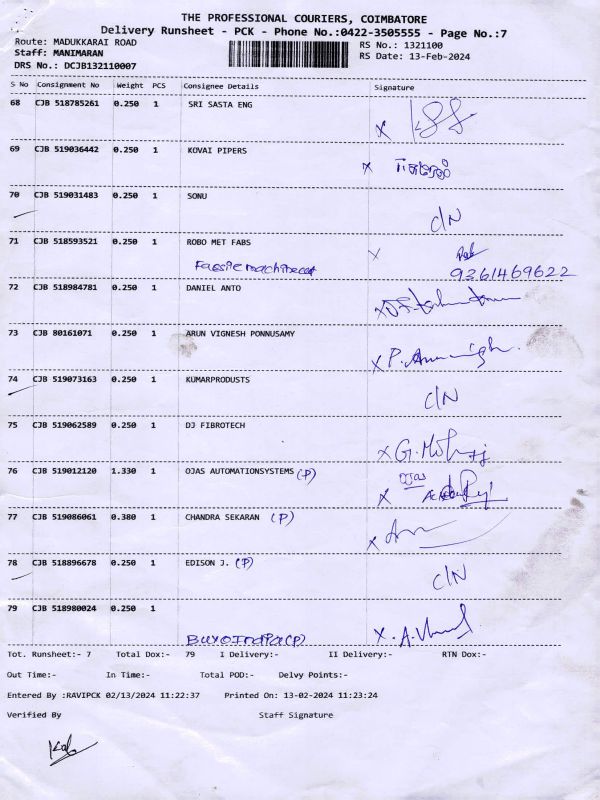 THE PROFESSIONAL COURIERS, COIMBATORE
Delivery Runsheet - PCK - Phone No.:0422-3505555 - Page No.:7
Route: MADUKKARAI ROAD RS No.: 1321100
Staff: MANIMARAN RS Date: 13-Feb-2024
DRS No.: DCJB132110007
S No Consignment No Weight PCS Consignee Details Signature
68 CJB 518785261 0.250 1 SRI SASTA ENG X
69 CJB 519036442 0.250 1 KOVAI PIPERS X
70 CJB 519031483 0.250 1 SONU C/N
71 CJB 518593521 0.250 1 ROBO MET FABS X
9361469622
72 CJB 518984781 0.250 1 DANIEL ANTO X
73 CJB 80161071 0.250 1 ARUN VIGNESH PONNUSAMY X P.
74 CJB 519073163 0.250 1 KUMARPRODUSTS C/N
75 CJB 519062589 0.250 1 DJ FIBROTECH X G.
76 CJB 519012120 1.330 1 OJAS AUTOMATIONSYSTEMS (P) ojas
X
77 CJB 519086061 0.380 1 CHANDRA SEKARAN (P) X
78 CJB 518896678 0.250 1 EDISON J. (P) C/N
79 CJB 518980024 0.250 1
BuyoIndia(P) X. A.
Tot. Runsheet:- 7 Total Dox:- 79 I Delivery:- II Delivery:- RTN Dox:-
Out Time:- In Time:- Total POD:- Delvy Points:-
Entered By :RAVIPCK 02/13/2024 11:22:37 Printed On: 13-02-2024 11:23:24
Verified By Staff Signature